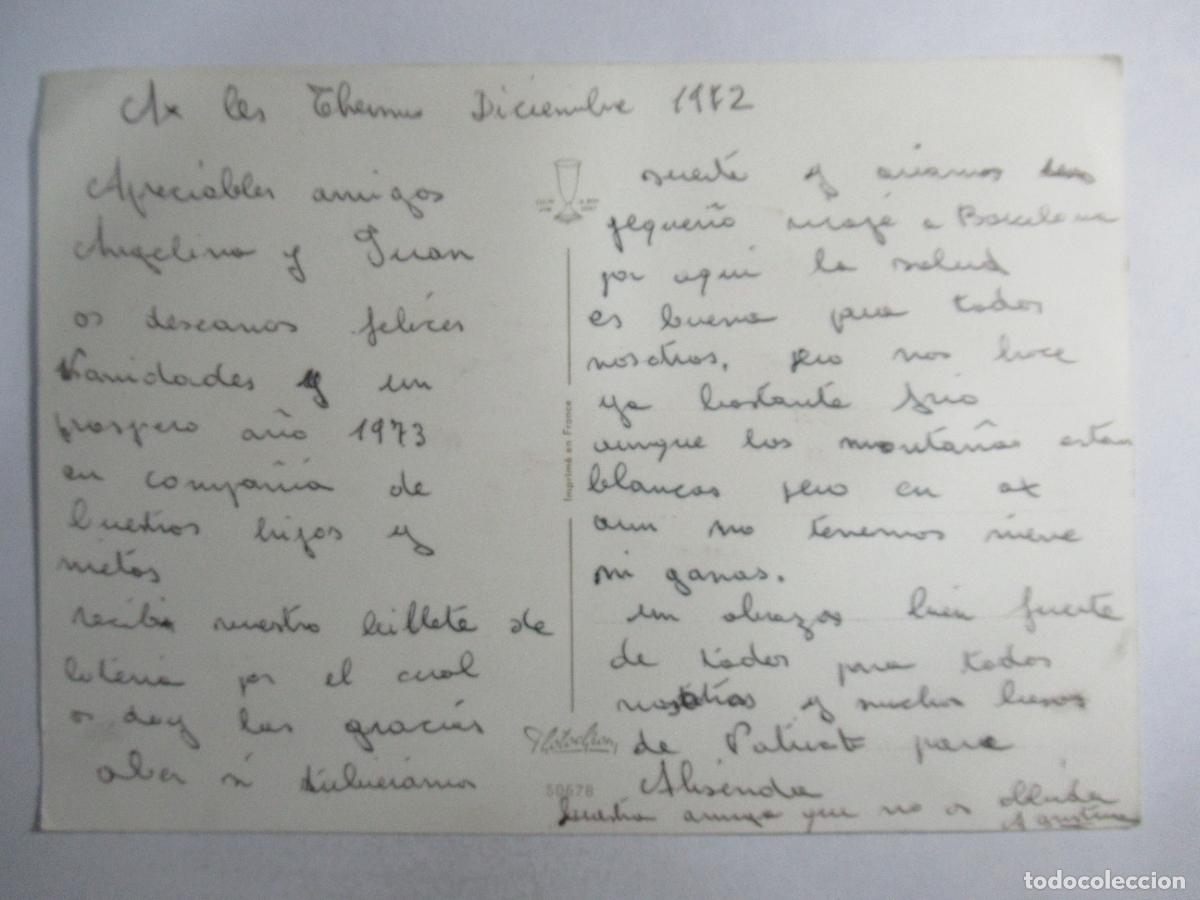 Ax les Thermes Diciembre 1972
Apreciables amigos
Angelina y Juan
os deseamos felices
Navidades y un
prospero año 1973
en compañia de
buestros hijos y
nietos
recibi vuestro billete de
loteria por el cual
os doy las gracias
aber si tubieramos
suerte y ariamos
pequeño viaje a Barcelona
por aqui la salud
es buena para todos
nosotros, pero nos hace
ya bastante frio
aunque las montañas estan
blancas pero en ax
aun no tenemos nieve
ni ganas.
un abrazos bien fuerte
de todos para todos
vosotros y muchos besos
de Patrick para
Alisenda
buestra amiga que no os olbida
Agustina
Imprimé en France
Photochrom
50678
todocoleccion